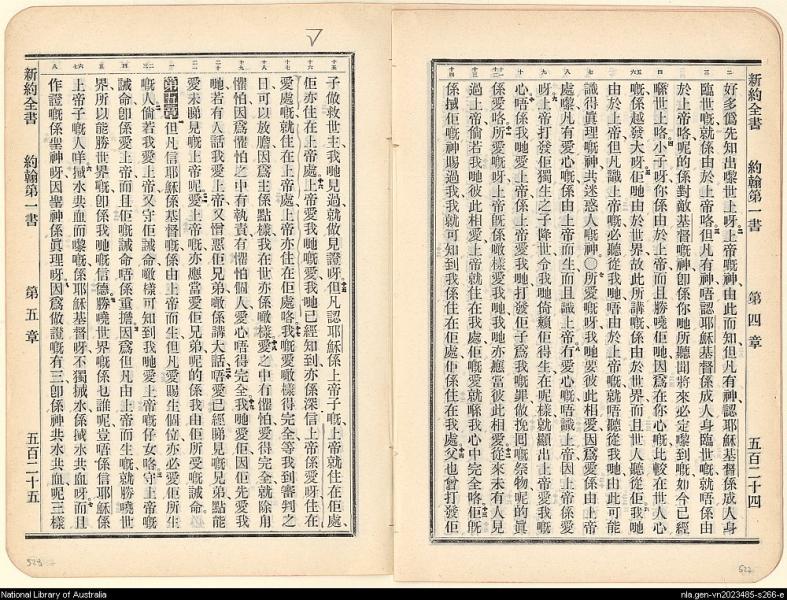 新約全書　約翰第一書　第四章　五百二十四
好多僞先知出嚟世上呀上帝嘅神由此而知但凡有神認耶穌基督係成人身
臨世嘅就係由於上帝咯但凡有神唔認耶穌基督係成人身臨世嘅就唔係由
於上帝咯呢的係對敵基督嘅神卽係你哋所聽聞將來必定嚟到嘅如今已經
喺世上咯小子呀你係由於上帝而且勝曉佢哋因爲在你心嘅比較在世人心
嘅係越發大呀佢哋由於世界故此所講嘅係由於世界而且世人聽從佢我哋
由於上帝但凡識上帝嘅必聽從我哋唔由於上帝嘅就唔聽從我哋由此可能
識得眞理嘅神共迷惑人嘅神〇所愛嘅呀我哋要彼此相愛因爲愛係由上帝
處嚟凡有愛心嘅係由上帝而生而且識上帝冇愛心嘅唔識上帝因上帝係愛
呀上帝打發佢獨生之子降世令我哋倚賴佢得生在呢樣就顯出上帝愛我嘅
心唔係我哋愛上帝係上帝愛我哋打發佢子爲我哋嘅罪做挽回嘅祭物呢的眞
係愛咯所愛嘅呀上帝旣係噉樣愛我哋我哋亦應當彼此相愛從來未有人見
過上帝倘若我哋彼此相愛上帝就住在我處佢嘅愛就喺我心中完全咯佢旣
係將佢嘅神賜過我我就可知到我係住在佢處佢係住在我處父也曾打發佢
子做救世主我哋見過就做見證呀但凡認耶穌係上帝子嘅上帝就住在佢處
佢亦住在上帝處上帝愛我哋嘅愛我哋已經知到亦係深信上帝係愛呀住在
愛處嘅就住在上帝處上帝亦住在佢處咯我嘅愛噉樣得完全等我到審判之
日可以放膽因爲主係點樣我在世亦係噉樣愛之中冇懼怕愛得完全就除用
懼怕因爲懼怕之中有執責有懼怕個人愛心唔得完全我哋愛佢因佢先愛我
哋若有人話我愛上帝又憎惡佢兄弟嘅係講大話唔愛已經睇見嘅兄弟點能
愛未睇見嘅上帝呢愛上帝嘅亦應當愛佢兄弟呢的係我由佢所受嘅誡命
第五章　但凡信耶穌係基督嘅係由上帝而生但凡愛賜生個位亦必愛佢所生
嘅人倘若我愛上帝又守佢誡命噉樣可知到我哋愛上帝嘅仔女咯守上帝嘅
誡命卽係愛上帝而且佢嘅誡命唔係重擔因爲但凡由上帝而生嘅就勝曉世
界所以能勝世界嘅卽係我哋嘅信德勝曉世界嘅係乜誰呢豈唔係信耶穌係
上帝子嘅人咩㨢水共血而嚟嘅係耶穌基督呀不獨㨢水係㨢水共血呀而且
作證嘅係聖神呀因聖神係眞理呀因爲做證嘅有三卽係神共水共血呢三樣
新約全書　約翰第一書　第五章　五百二十五
523
522
National Library of Australia
nla.gen-vn2023485-s266-e